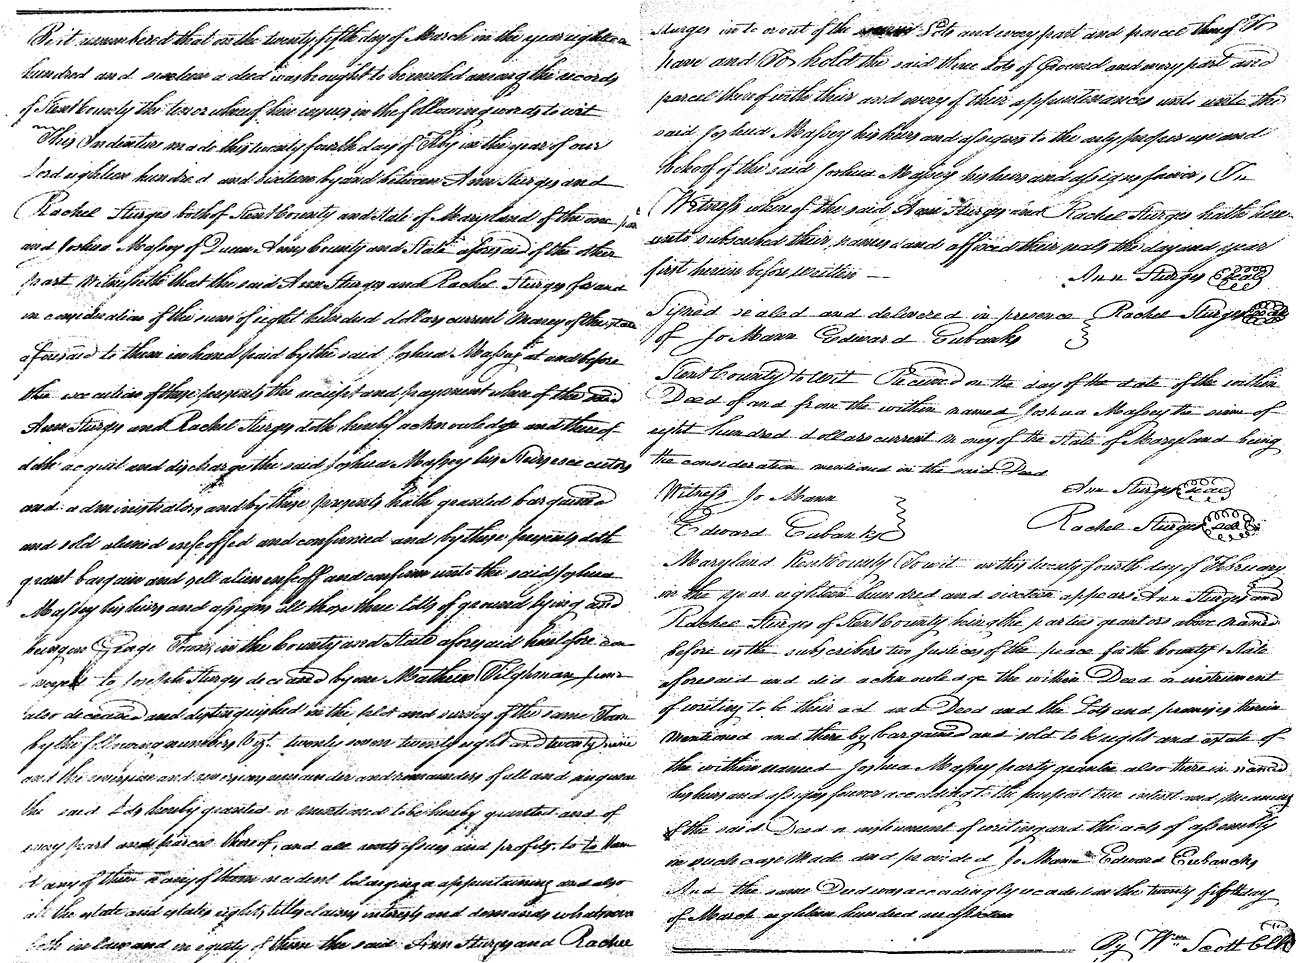 Be it remembered that on the twenty fifth day of March in the year eighteen
hundred and sixteen a deed was brought to be enrolled among the records
of Kent County the tenor whereof here insues in the following words to wit
This Indenture made this twenty fourth day of Feby in the year of our
Lord eighteen hundred and sixteen by and between Ann Sturges and
Rachel Sturges both of Kent County and State of Maryland of the one part
and Joshua Massey of Queen Anns County and State aforesaid of the other
part Witnesseth that the said Ann Sturges and Rachel Sturges for and
in consideration of the sum of eight hundred dollars current money of the state
aforesaid to them in hand paid by the said Joshua Massey at and before
the execution of these presents the receipt and payment whereof the said
Ann Sturges and Rachel Sturges doth hereby acknowledge and thereof
doth acquit and discharge the said Joshua Massey his Heirs executors
and administrators and by these presents hath granted bargained
and sold aliened enfeoffed and confirmed and by these presents doth
grant bargain and sell alien enfeoff and confirm unto the said Joshua
Massey his heirs and assigns all those three lotts of ground lying and
being in George Town in the County and State aforesaid heretofore con
-veyed to Joseph Sturges deceased by one Mathew Tilghman
also deceased and distinguished in the plot and survey of the same Town
by the following numbers Viz. twenty seven twenty eight and twenty nine
and the reversion and reversions remainder and remainders of all and singular
the said Lots hereby granted or mentioned to be hereby granted and of
every part and parcel thereof, and all rents issues and profits to to them
or any of them or any of them incident belonging or appertaining and also
all the estate and estates rights titles claims interests and demands whatsoever
both in law and in equity of them the said Ann Sturges and Rachel
Sturges in to or out of the Lots and every part and parcel thereof To
have and To hold the said three lots of Ground and every part and
parcel thereof with their and every of their appurtenances unto unto the
said Joshua Massey his heirs and assigns to the only proper use and
behoof of the said Joshua Massey his heirs and assigns forever, In
Witness whereof the said Ann Sturges and Rachel Sturges hath here
unto subscribed their names and affixed their seals the day and year
first herein before written —
Ann Sturges Seal
Signed sealed and delivered in presence Rachel Sturges Seal
of Jo Mann Edward Eubanks
Kent County to wit Received on the day of the date of the within
Deed of and from the within named Joshua Massey the sum of
eight hundred dollars current money of the State of Maryland being
the consideration mentioned in the said Deed
Witness Jo Mann Ann Sturges Seal
Edward Eubanks Rachel Sturges Seal
Maryland Kent County To wit on this twenty fourth day of February
in the year eighteen hundred and sixteen appears Ann Sturges and
Rachel Sturges of Kent County being the parties grantors above named
before us the subscribers two Justices of the peace for the County & State
aforesaid and did acknowledge the within Deed or instrument
of writing to be their act and Deed and the Lots and premises therein
mentioned and thereby bargained and sold to be right and estate of
the within named Joshua Massey party grantee also therein named
his heirs and assigns forever according to the purport true intent and meaning
of the said Deed or instrument of writing and the acts of assembly
in such case made and provided Jo Mann Edward Eubanks
And the same Deed was accordingly recorded on the twenty fifth day
of March eighteen hundred and sixteen
By Wm Scott Clk